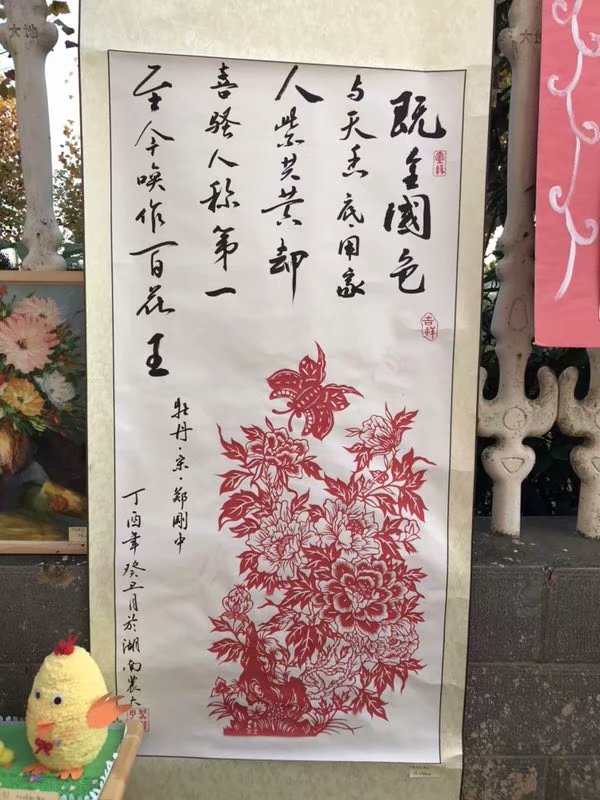 既全國色
与天香底用家
人紫共黄却
喜骚人称第一
至今唤作百花王
牡丹·宋·郑剛中
丁酉年癸丑月於湖南農大
吉祥